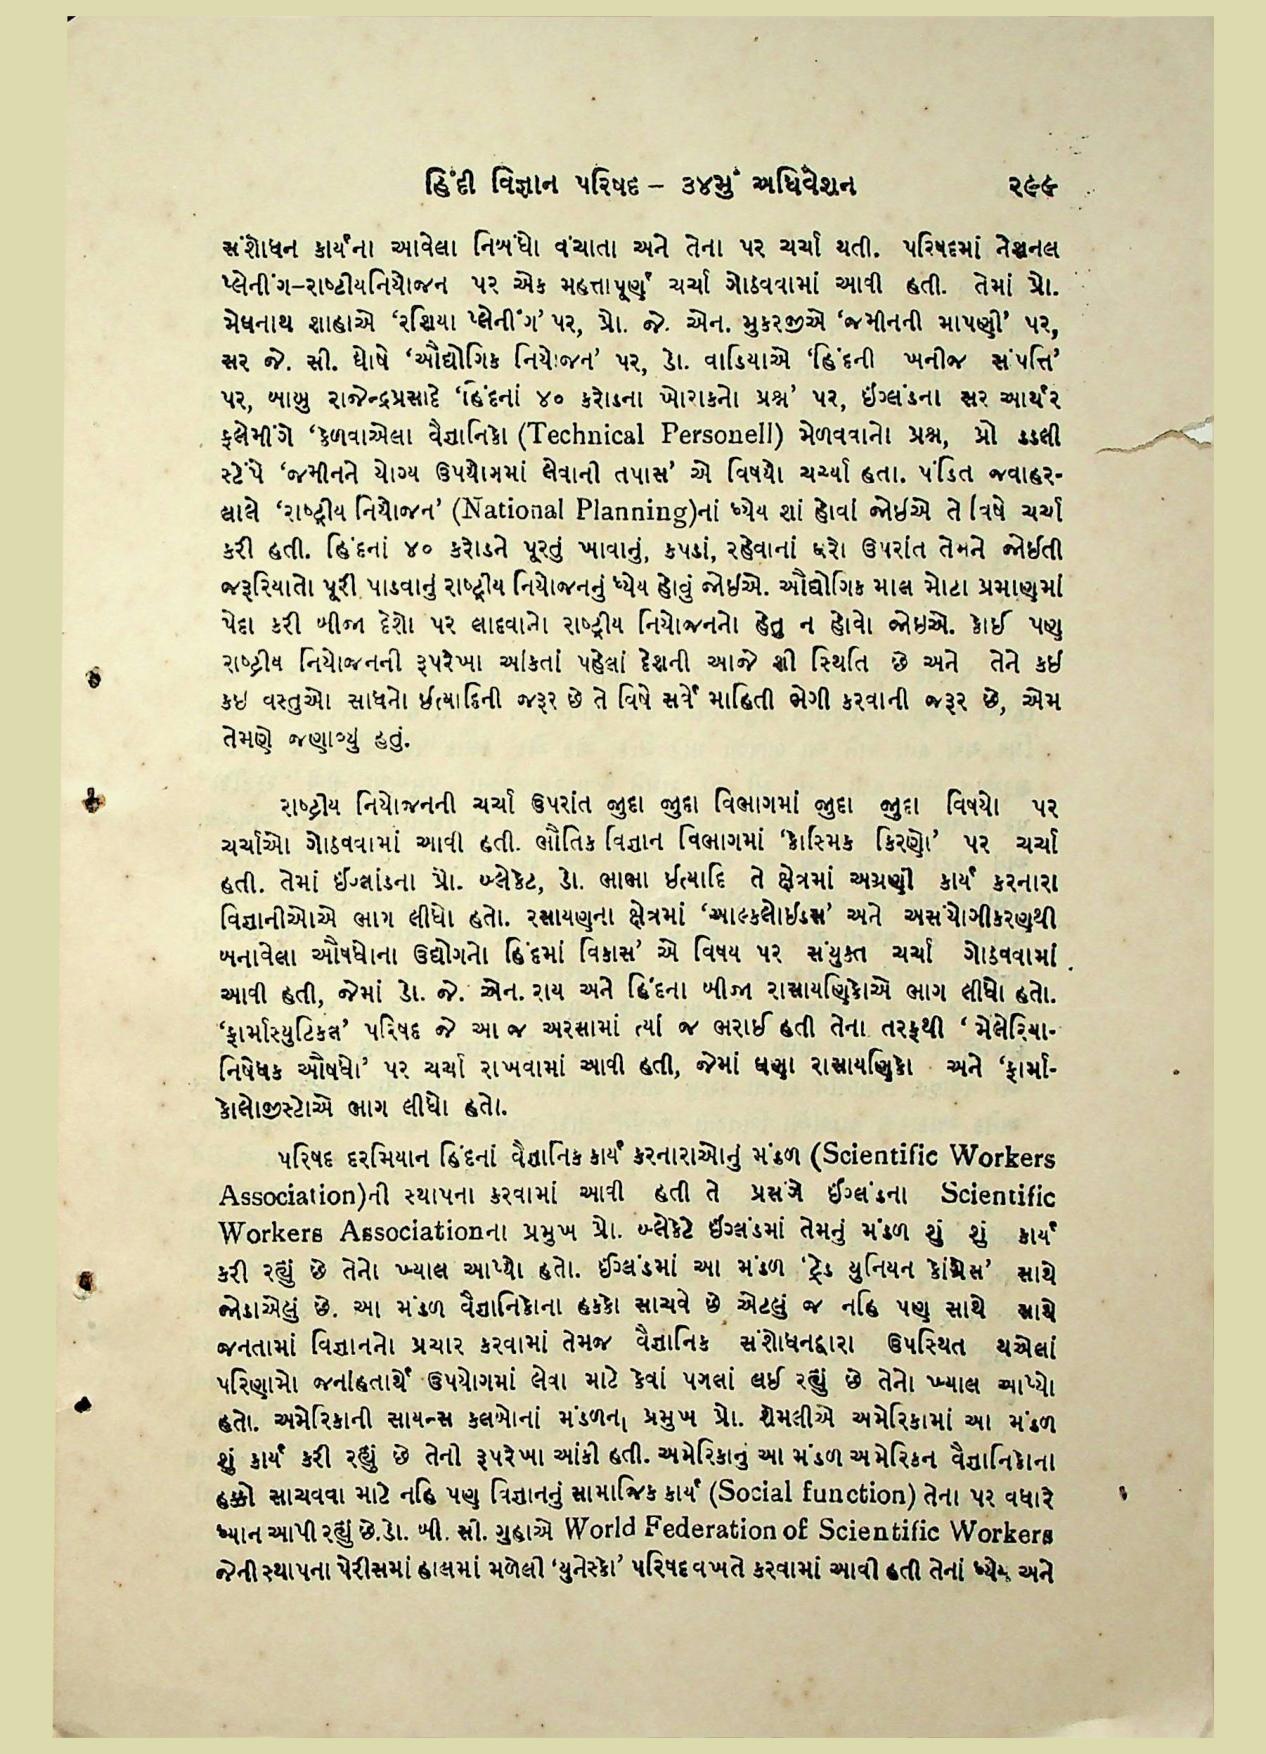 હિંદી વિજ્ઞાન પરિષદ – ૩૪મું અધિવેશન ૨૯૯
સંશોધન કાર્યના આવેલા નિબંધો વંચાતા અને તેના પર ચર્ચા થતી. પરિષદમાં નેશનલ
પ્લેનીંગ–રાષ્ટીયનિયોજન પર એક મહત્તાપૂર્ણ ચર્ચા ગોઠવવામાં આવી હતી. તેમાં પ્રો.
મેઘનાથ શાહાએ ‘રશિયા પ્લેનીંગ’ પર, પ્રો. જે. એન. મુકરજીએ ‘જમીનની માપણી’ પર,
સર જે. સી. ઘોષે ‘ઔદ્યોગિક નિયોજન’ પર, ડો. વાડિયાએ ‘હિંદની ખનીજ સંપત્તિ’
પર, બાબુ રાજેન્દ્રપ્રસાદે ‘હિંદનાં ૪૦ કરોડના ખોરાકનો પ્રશ્ન’ પર, ઇંગ્લંડના સર આર્થર
ફ્લેમીંગે ‘કેળવાએલા વૈજ્ઞાનિકો (Technical Personell) મેળવવાનો પ્રશ્ન, પ્રો ડડલી
સ્ટેંપે ‘જમીનને યોગ્ય ઉપયોગમાં લેવાની તપાસ’ એ વિષયો ચર્ચ્યા હતા. પંડિત જવાહર-
લાલે ‘રાષ્ટ્રીય નિયોજન’ (National Planning)નાં ધ્યેય શાં હોવાં જોઇએ તે વિષે ચર્ચા
કરી હતી. હિંદનાં ૪૦ કરોડને પૂરતું ખાવાનું, કપડાં, રહેવાનાં ઘરો ઉપરાંત તેમને જોઇતી
જરૂરિયાતો પૂરી પાડવાનું રાષ્ટ્રીય નિયોજનનું ધ્યેય હોવું જોઇએ. ઔદ્યોગિક માલ મોટા પ્રમાણમાં
પેદા કરી બીજા દેશો પર લાદવાનો રાષ્ટ્રીય નિયોજનનો હેતુ ન હોવો જોઇએ. કોઈ પણ
રાષ્ટ્રીય નિયોજનની રૂપરેખા આંકતાં પહેલાં દેશની આજે શી સ્થિતિ છે અને તેને કઇ
કઇ વસ્તુઓ સાધનો ઇત્યાદિની જરૂર છે તે વિષે સર્વે માહિતી ભેગી કરવાની જરૂર છે, એમ
તેમણે જણાવ્યું હતું.
રાષ્ટ્રીય નિયોજનની ચર્ચા ઉપરાંત જુદા જુદા વિભાગમાં જુદા જુદા વિષયો પર
ચર્ચાઓ ગોઠવવામાં આવી હતી. ભૌતિક વિજ્ઞાન વિભાગમાં ‘કોસ્મિક કિરણો’ પર ચર્ચા
હતી. તેમાં ઈંગ્લાંડના પ્રો. બ્લેકેટ, ડો. ભાભા ઈત્યાદિ તે ક્ષેત્રમાં અગ્રણી કાર્ય કરનારા
વિજ્ઞાનીઓએ ભાગ લીધો હતો. રસાયણના ક્ષેત્રમાં ‘આલ્કલોઈડસ’ અને અસંયોગીકરણથી
બનાવેલા ઔષધોના ઉદ્યોગનો હિંદમાં વિકાસ’ એ વિષય પર સંયુક્ત ચર્ચા ગોઠવવામાં
આવી હતી, જેમાં ડો. જે. એન. રાય અને હિંદના બીજા રાસાયણિકોએ ભાગ લીધો હતો.
‘ફાર્માસ્યુટિકલ’ પરિષદ જે આ જ અરસામાં ત્યાં જ ભરાઈ હતી તેના તરફથી ‘ મેલેરિયા-
નિષેધક ઔષધો’ પર ચર્ચા રાખવામાં આવી હતી, જેમાં ઘણા રાસાયણિકો અને ‘ફાર્મા-
કોલોજીસ્ટોએ ભાગ લીધો હતો.
પરિષદ દરમિયાન હિંદનાં વૈજ્ઞાનિક કાર્ય કરનારાઓનું મંડળ (Scientific Workers
Association)ની સ્થાપના કરવામાં આવી હતી તે પ્રસંગે ઈંગ્લંડના Scientific
Workers Associationના પ્રમુખ પ્રો. બ્લેકેટે ઈંગ્લંડમાં તેમનું મંડળ શું શું કાર્ય
કરી રહ્યું છે તેનો ખ્યાલ આપ્યો હતો. ઈંગ્લંડમાં આ મંડળ ‘ટ્રેડ યુનિયન કોંગ્રેસ’ સાથે
જોડાએલું છે. આ મંડળ વૈજ્ઞાનિકોના હકકો સાચવે છે એટલું જ નહિ પણ સાથે સાથે
જનતામાં વિજ્ઞાનનો પ્રચાર કરવામાં તેમજ વૈજ્ઞાનિક સંશોધનદ્વારા ઉપસ્થિત થએલાં
પરિણામો જનહિતાર્થે ઉપયોગમાં લેવા માટે કેવાં પગલાં લઈ રહ્યું છે તેનો ખ્યાલ આપ્યો
હતો. અમેરિકાની સાયન્સ કલબોનાં મંડળના પ્રમુખ પ્રો. શેમલીએ અમેરિકામાં આ મંડળ
શું કાર્ય કરી રહ્યું છે તેની રૂપરેખા આંકી હતી. અમેરિકાનું આ મંડળ અમેરિકન વૈજ્ઞાનિકોના
હક્કો સાચવવા માટે નહિ પણ વિજ્ઞાનનું સામાજિક કાર્ય (Social function) તેના પર વધારે
ધ્યાન આપી રહ્યું છે.ડો. બી. સી. ગુહાએ World Federation of Scientific Workers
જેની સ્થાપના પેરીસમાં હાલમાં મળેલી ‘યુનેસ્કો’ પરિષદ વખતે કરવામાં આવી હતી તેનાં ધ્યેય અને